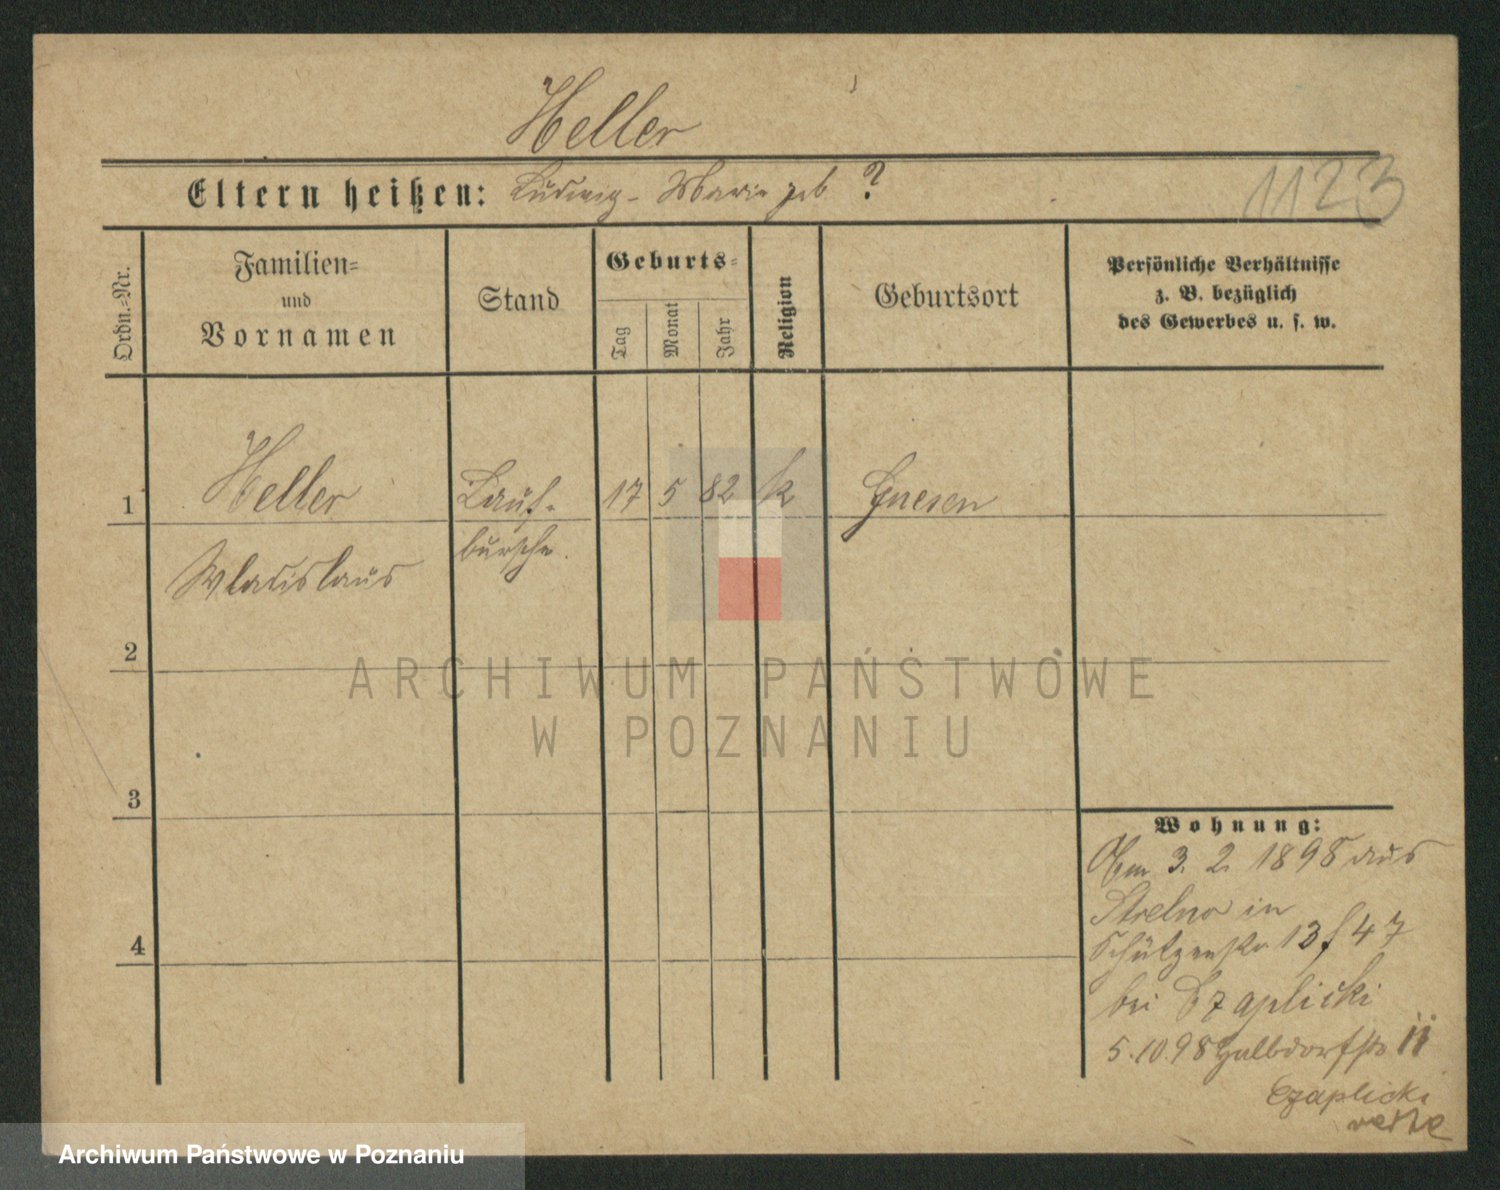 Heller
Eltern heißen: Ludwig - Marie geb ?
1123
Ordn.-Nr.
Familien-
und
Vornamen
Stand
Geburts-
Tag
Monat
Jahr
Religion
Geburtsort
Persönliche Verhältnisse
z. B. bezüglich
des Gewerbes u. s. w.
1
Heller
Wladislaus
Lauf-
bursche.
17 5 82 k Gnesen
2
3
4
Wohnung:
3. 2. 1898 aus
Strelno in
Schützenstr 13 f 47
bei Czaplicki
5.10.98 Halbdorfstr 11
Czaplicki
ARCHIWUM PAŃSTWOWE
W POZNANIU
Archiwum Państwowe w Poznaniu